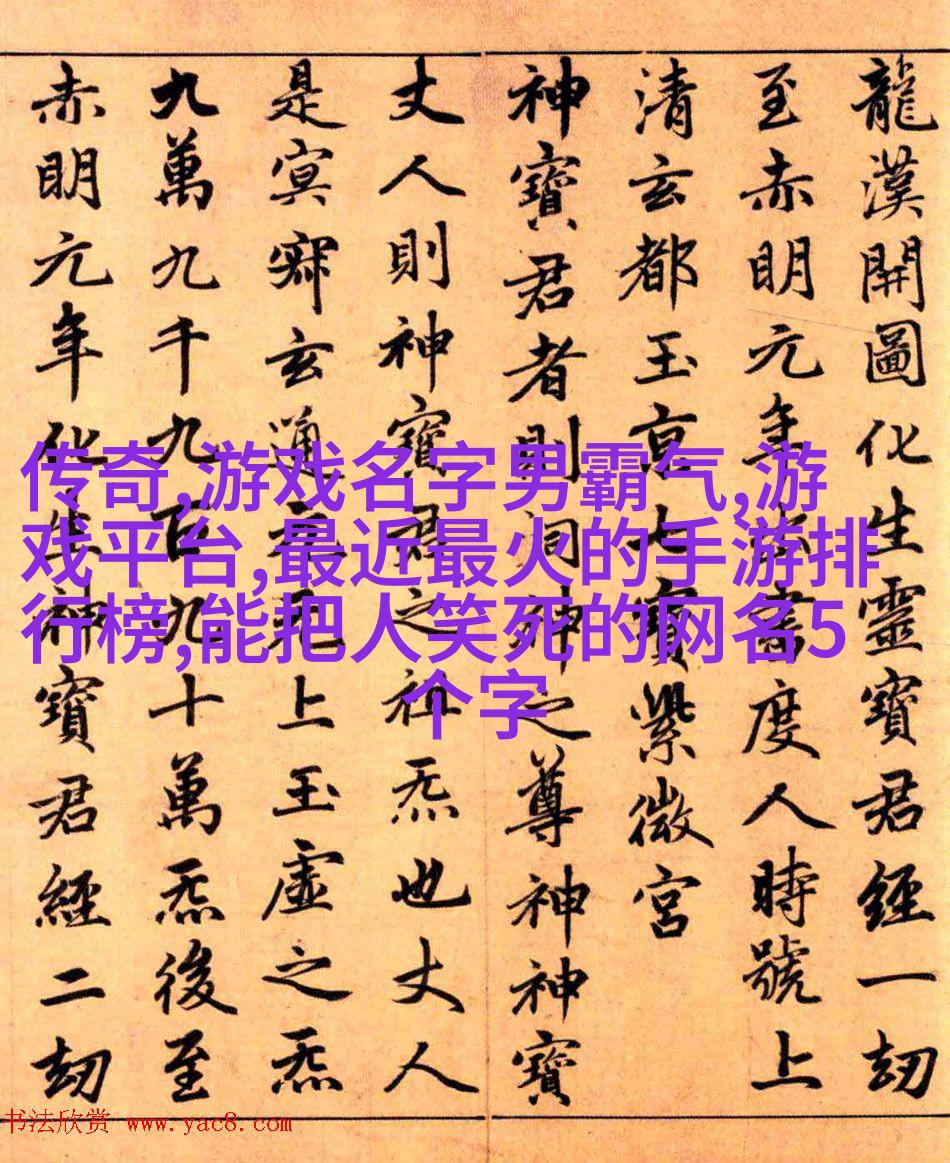 龍漢開圖化生靈寶君經一劫
至赤明元年出書度人時號上
清玄都玉京七寶紫微宮
神寶君者則洞神之尊神神寶
丈人則神寶君之祖炁也丈人
是冥寂玄通元无上玉虛之炁
九萬九千九百九十萬炁後至
赤明元年化生神寶君經二劫
传奇,游戏名字男霸气,游
戏平台,最近最火的手游排
行榜,能把人笑死的网名5
个字
书法欣赏 www.yac8.com